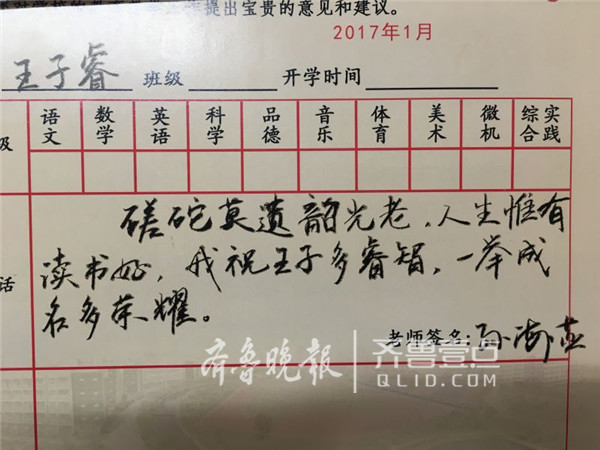 提出宝贵的意见和建议。
2017年1月
王子睿 班级 开学时间
语文 数学 英语 科学 品德 音乐 体育 美术 微机 综合实践
级
磋砣莫遗韶光老，人生惟有
读书好，我祝王子多睿智，一举成
名多荣耀。
话
老师签名：孙海燕
齐鲁晚报 齐鲁壹点
QLID.COM